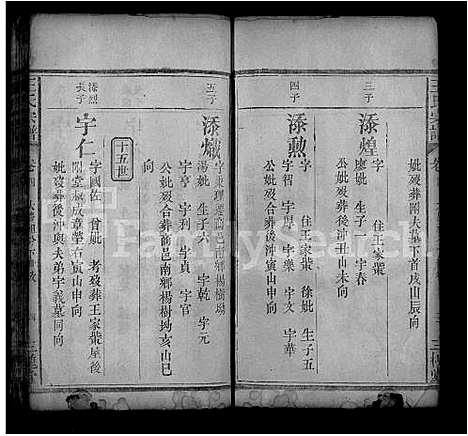 妣歿葬關夫塋下首戌山辰向
三子
添煌
字 住王家叢
廖妣 生子一 宇春
公妣歿合葬後沖丑山未向
四子
添勲
字 住王家叢 徐妣 生子五
宇習 宇興 宇樂 宇文 宇華
公妣歿合葬後沖寅山申向
五子
添熾
字東理 遷商邑南鄉楊樹塲
湯妣 生子六 宇乾 宇元
宇亨 宇利 宇貞 宇官
公妣歿合葬商邑南鄉楊樹坳亥山巳
向
十五世
添烈
長子
宇仁
字國佐 曾妣 考歿葬王家叢屋後
關堂淑成章塋右寅山申向
妣歿葬後沖與夫弟宇義墓同向
王氏宗譜
卷四
FamilySearch